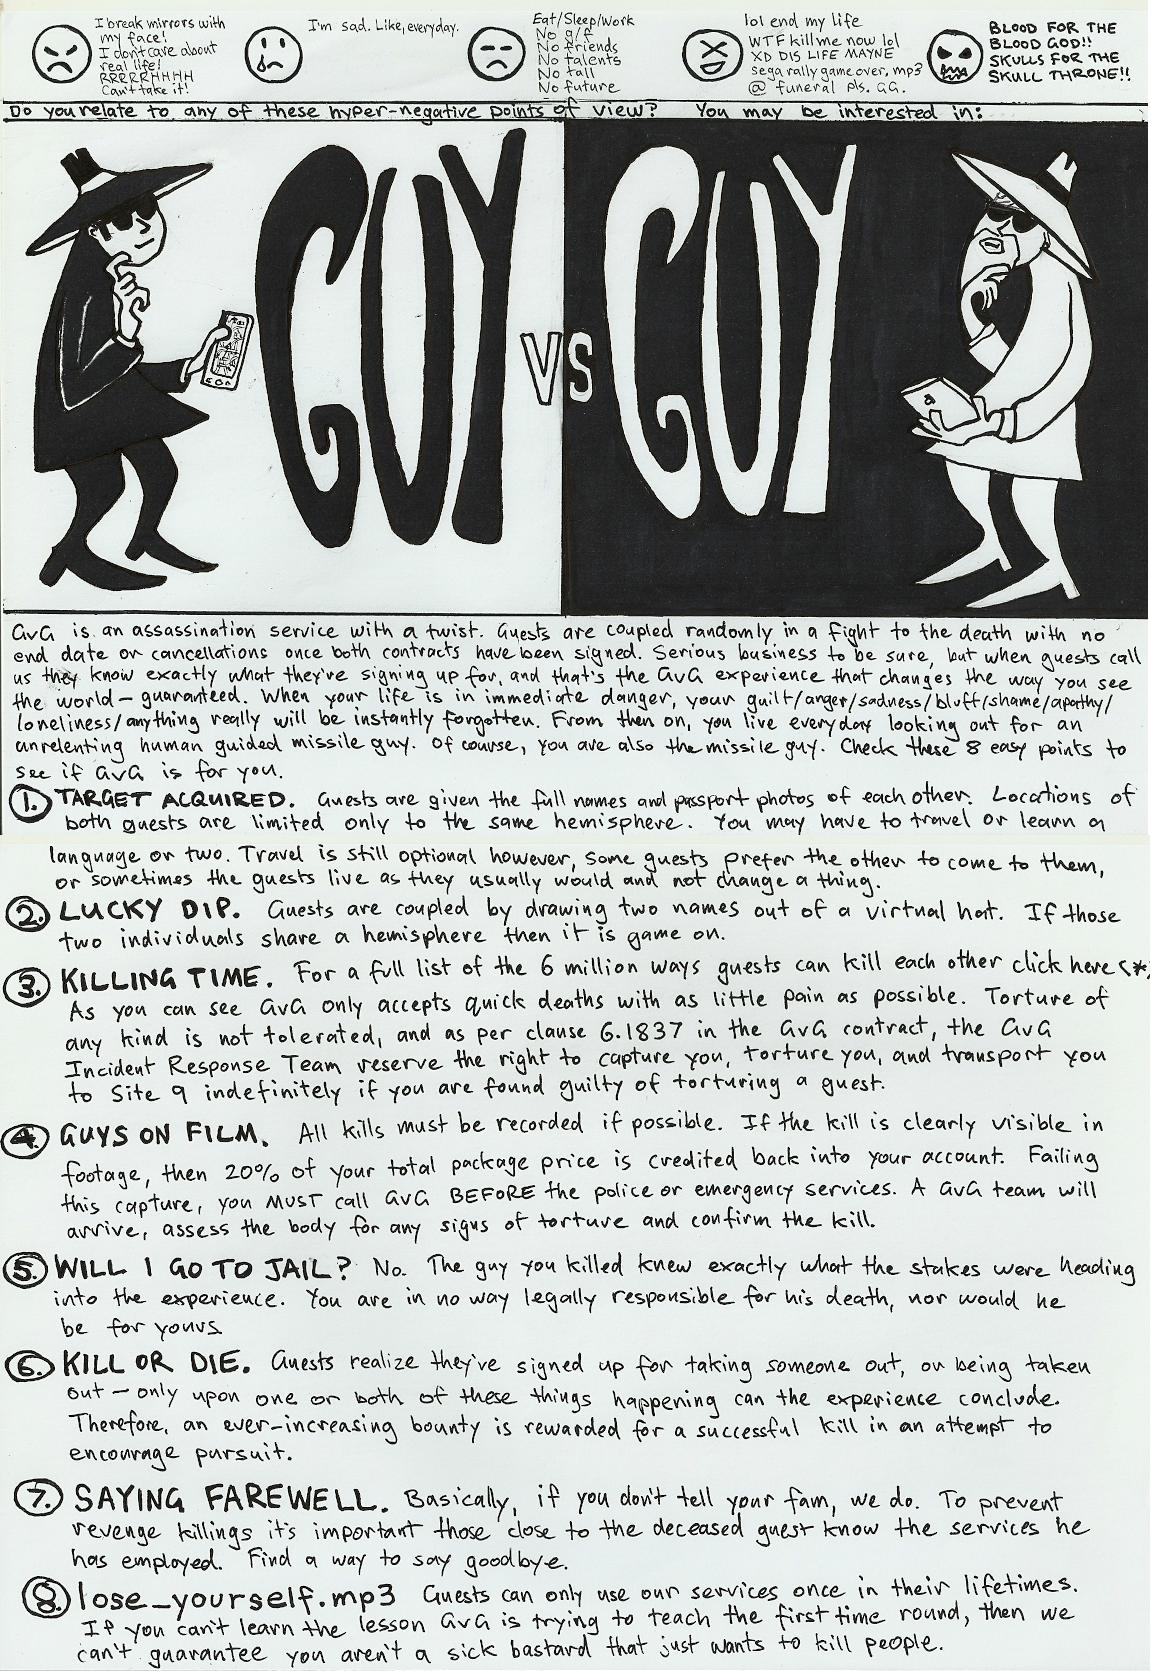 I break mirrors with
my face!
I don't care about
real life!
RRRRRHHHH
Can't take it!
I'm sad. Like, everyday.
Eat/Sleep/Work
No g/f
No friends
No talents
No tall
No future
lol end my life
WTF kill me now lol
XD DIS LIFE MAYNE
sega rally game over.mp3
@ funeral pls. GG.
BLOOD FOR THE
BLOOD GOD!!
SKULLS FOR THE
SKULL THRONE!!
Do you relate to any of these hyper-negative points of view? You may be interested in:
GUY VS GUY
GvG is an assassination service with a twist. Guests are coupled randomly in a fight to the death with no
end date or cancellations once both contracts have been signed. Serious business to be sure, but when guests call
us they know exactly what they've signing up for, and that's the GvG experience that changes the way you see
the world – guaranteed. When your life is in immediate danger, your guilt/anger/sadness/bluff/shame/apathy/
loneliness/anything really will be instantly forgotten. From then on, you live everyday looking out for an
unrelenting human guided missile guy. Of course, you are also the missile guy. Check these 8 easy points to
see if GvG is for you.
1. TARGET ACQUIRED. Guests are given the full names and passport photos of each other. Locations of
both guests are limited only to the same hemisphere. You may have to travel or learn a
language or two. Travel is still optional however, some guests prefer the other to come to them,
or sometimes the guests live as they usually would and not change a thing.
2. LUCKY DIP. Guests are coupled by drawing two names out of a virtual hat. If those
two individuals share a hemisphere then it is game on.
3. KILLING TIME. For a full list of the 6 million ways guests can kill each other click here (*)
As you can see GvG only accepts quick deaths with as little pain as possible. Torture of
any kind is not tolerated, and as per clause G.1837 in the GvG contract, the GvG
Incident Response Team reserve the right to capture you, torture you, and transport you
to Site 9 indefinitely if you are found guilty of torturing a guest.
4. GUYS ON FILM. All kills must be recorded if possible. If the kill is clearly visible in
footage, then 20% of your total package price is credited back into your account. Failing
this capture, you MUST call GvG BEFORE the police or emergency services. A GvG team will
arrive, assess the body for any signs of torture and confirm the kill.
5. WILL I GO TO JAIL? No. The guy you killed knew exactly what the stakes were heading
into the experience. You are in no way legally responsible for his death, nor would he
be for yours
6. KILL OR DIE. Guests realize they've signed up for taking someone out, or being taken
out – only upon one or both of these things happening can the experience conclude.
Therefore, an ever-increasing bounty is rewarded for a successful kill in an attempt to
encourage pursuit.
7. SAYING FAREWELL. Basically, if you don't tell your fam, we do. To prevent
revenge killings it's important those close to the deceased guest know the services he
has employed. Find a way to say goodbye.
8. lose_yourself.mp3 Guests can only use our services once in their lifetimes.
If you can't learn the lesson GvG is trying to teach the first time round, then we
can't guarantee you aren't a sick bastard that just wants to kill people.